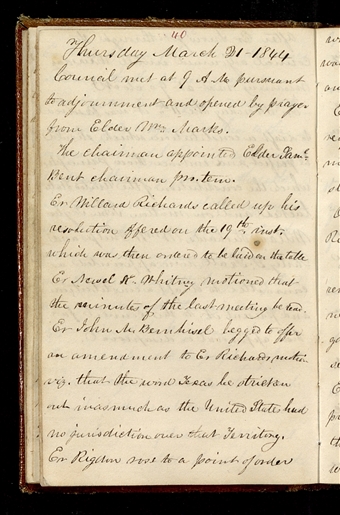 40
Thursday March 21 - 1844
Council met at 9 A M pursuant
to adjournment and opened by prayer
from Elder Wm. Marks.
The chairman appointed Elder Saml.
Bent chairman pro. tem.
Er Willard Richards called up his
resolution offered on the 19th. inst.
which was then ordered to be laid on the table
Er Newel K. Whitney motioned that
the minutes of the last meeting be read.
Er John M. Bernhisel begged to offer
an amendment to Er Richards motion
viz. that the word Texas be stricken
out inasmuch as the United State had
no jurisdiction over that Territory.
Er Rigdon rose to a point of order